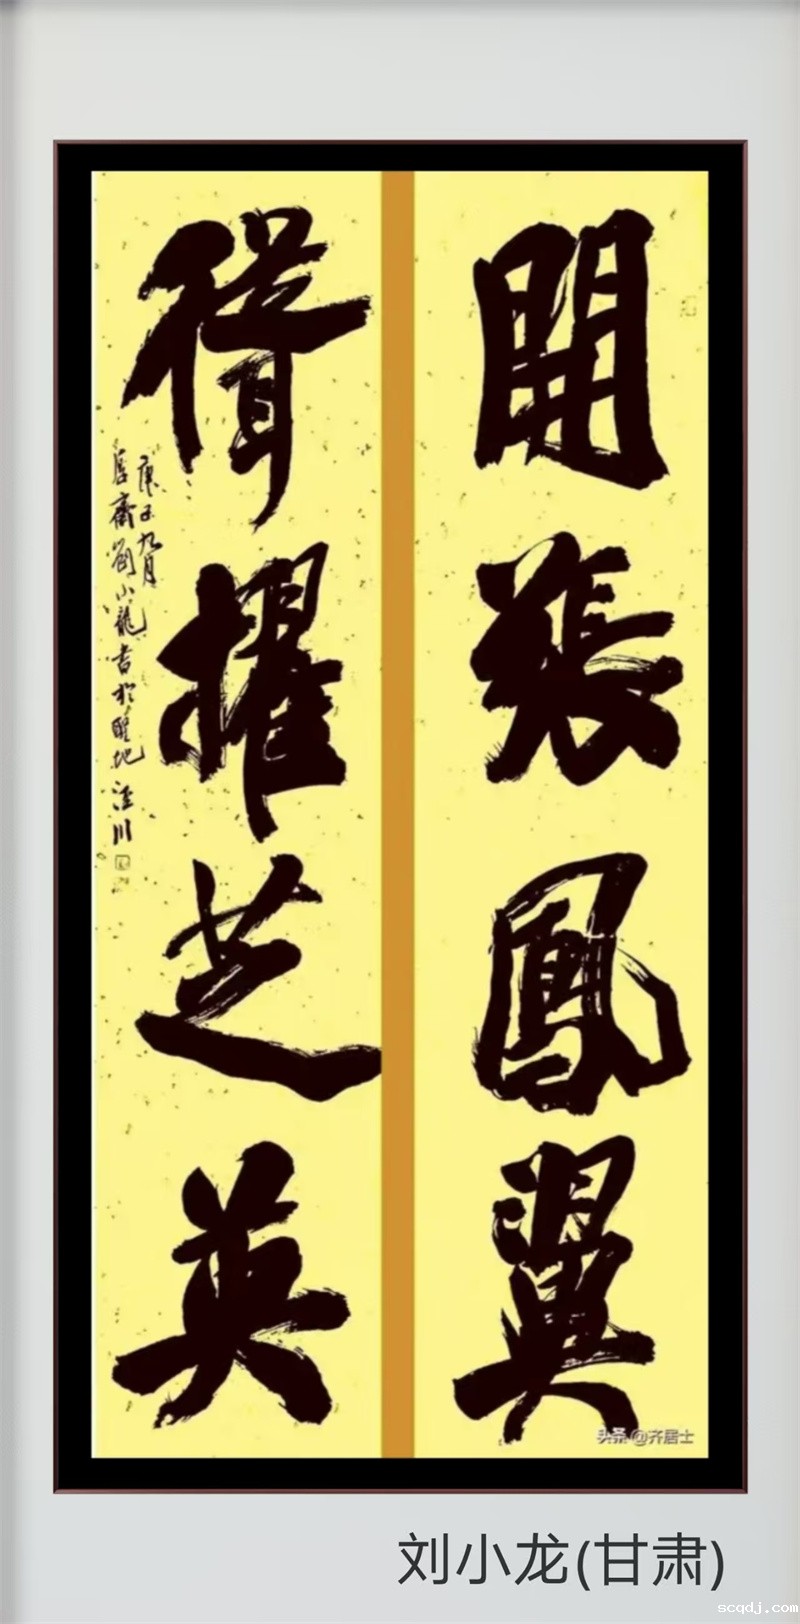 開張鳳翼
聳擢芝英
庚子九月
齋劉小龍書於聖地涇川
头条 @齐居士
刘小龙(甘肃)
scqdj.com